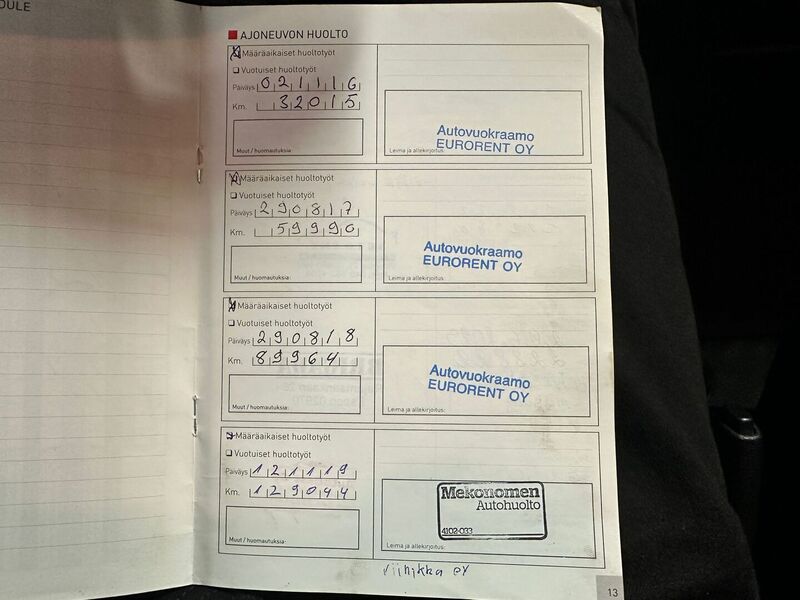 DULE
AJONEUVON HUOLTO
Määräaikaiset huoltotyöt
Vuotuiset huoltotyöt
Päiväys 021116
Km. 32015
Muut / huomautuksia:
Autovuokraamo
EURORENT OY
Leima ja allekirjoitus:
Määräaikaiset huoltotyöt
Vuotuiset huoltotyöt
Päiväys 290817
Km. 59990
Muut / huomautuksia:
Autovuokraamo
EURORENT OY
Leima ja allekirjoitus:
Määräaikaiset huoltotyöt
Vuotuiset huoltotyöt
Päiväys 290818
Km. 89964
Muut / huomautuksia:
Autovuokraamo
EURORENT OY
Leima ja allekirjoitus:
Määräaikaiset huoltotyöt
Vuotuiset huoltotyöt
Päiväys 121119
Km. 129044
Muut / huomautuksia:
Mekonomen
Autohuolto
4102-033
Leima ja allekirjoitus:
OY
13